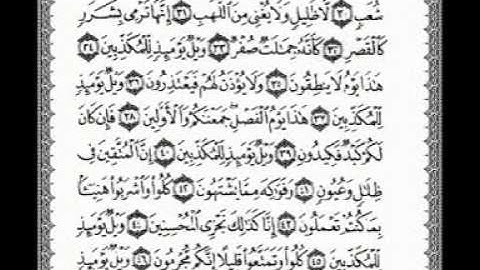 شُعَبٍ ٣٠ لَّا ظَلِيلٍ وَلَا يُغْنِى مِنَ ٱللَّهَبِ ٣١ إِنَّهَا تَرْمِى بِشَرَرٍ
كَٱلْقَصْرِ ٣٢ كَأَنَّهُۥ جِمَٰلَتٌ صُفْرٌ ٣٣ وَيْلٌ يَوْمَئِذٍ لِّلْمُكَذِّبِينَ ٣٤
هَٰذَا يَوْمُ لَا يَنطِقُونَ ٣٥ وَلَا يُؤْذَنُ لَهُمْ فَيَعْتَذِرُونَ ٣٦ وَيْلٌ يَوْمَئِذٍ
لِّلْمُكَذِّبِينَ ٣٧ هَٰذَا يَوْمُ ٱلْفَصْلِ جَمَعْنَٰكُمْ وَٱلْأَوَّلِينَ ٣٨ فَإِن كَانَ
لَكُمْ كَيْدٌ فَكِيدُونِ ٣٩ وَيْلٌ يَوْمَئِذٍ لِّلْمُكَذِّبِينَ ٤٠ إِنَّ ٱلْمُتَّقِينَ فِى
ظِلَٰلٍ وَعُيُونٍ ٤١ وَفَوَٰكِهَ مِمَّا يَشْتَهُونَ ٤٢ كُلُوا۟ وَٱشْرَبُوا۟ هَنِيٓـًٔۢا
بِمَا كُنتُمْ تَعْمَلُونَ ٤٣ إِنَّا كَذَٰلِكَ نَجْزِى ٱلْمُحْسِنِينَ ٤٤ وَيْلٌ يَوْمَئِذٍ
لِّلْمُكَذِّبِينَ ٤٥ كُلُوا۟ وَتَمَتَّعُوا۟ قَلِيلًا إِنَّكُم مُّجْرِمُونَ ٤٦ وَيْلٌ يَوْمَئِذٍ